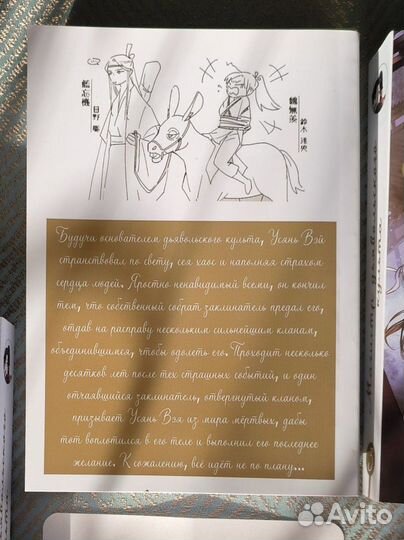 藍忘機
日野 聡
魏無羨
鈴木 達央
Будучи основателем дьявольского культа, Усянь Вэй
странствовал по свету, сея хаос и наполняя страхом
сердца людей. Яростно ненавидимый всеми, он кончил
тем, что собственный собрат заклинатель предал его,
отдав на расправу нескольким сильнейшим кланам,
объединившимся, чтобы одолеть его. Проходит несколько
десятков лет после тех страшных событий, и один
отчаявшийся заклинатель, отвергнутый кланом,
призывает Усянь Вэя из мира мёртвых, дабы
тот воплотился в его теле и выполнил его последнее
желание. К сожалению, всё идёт не по плану...
Avito